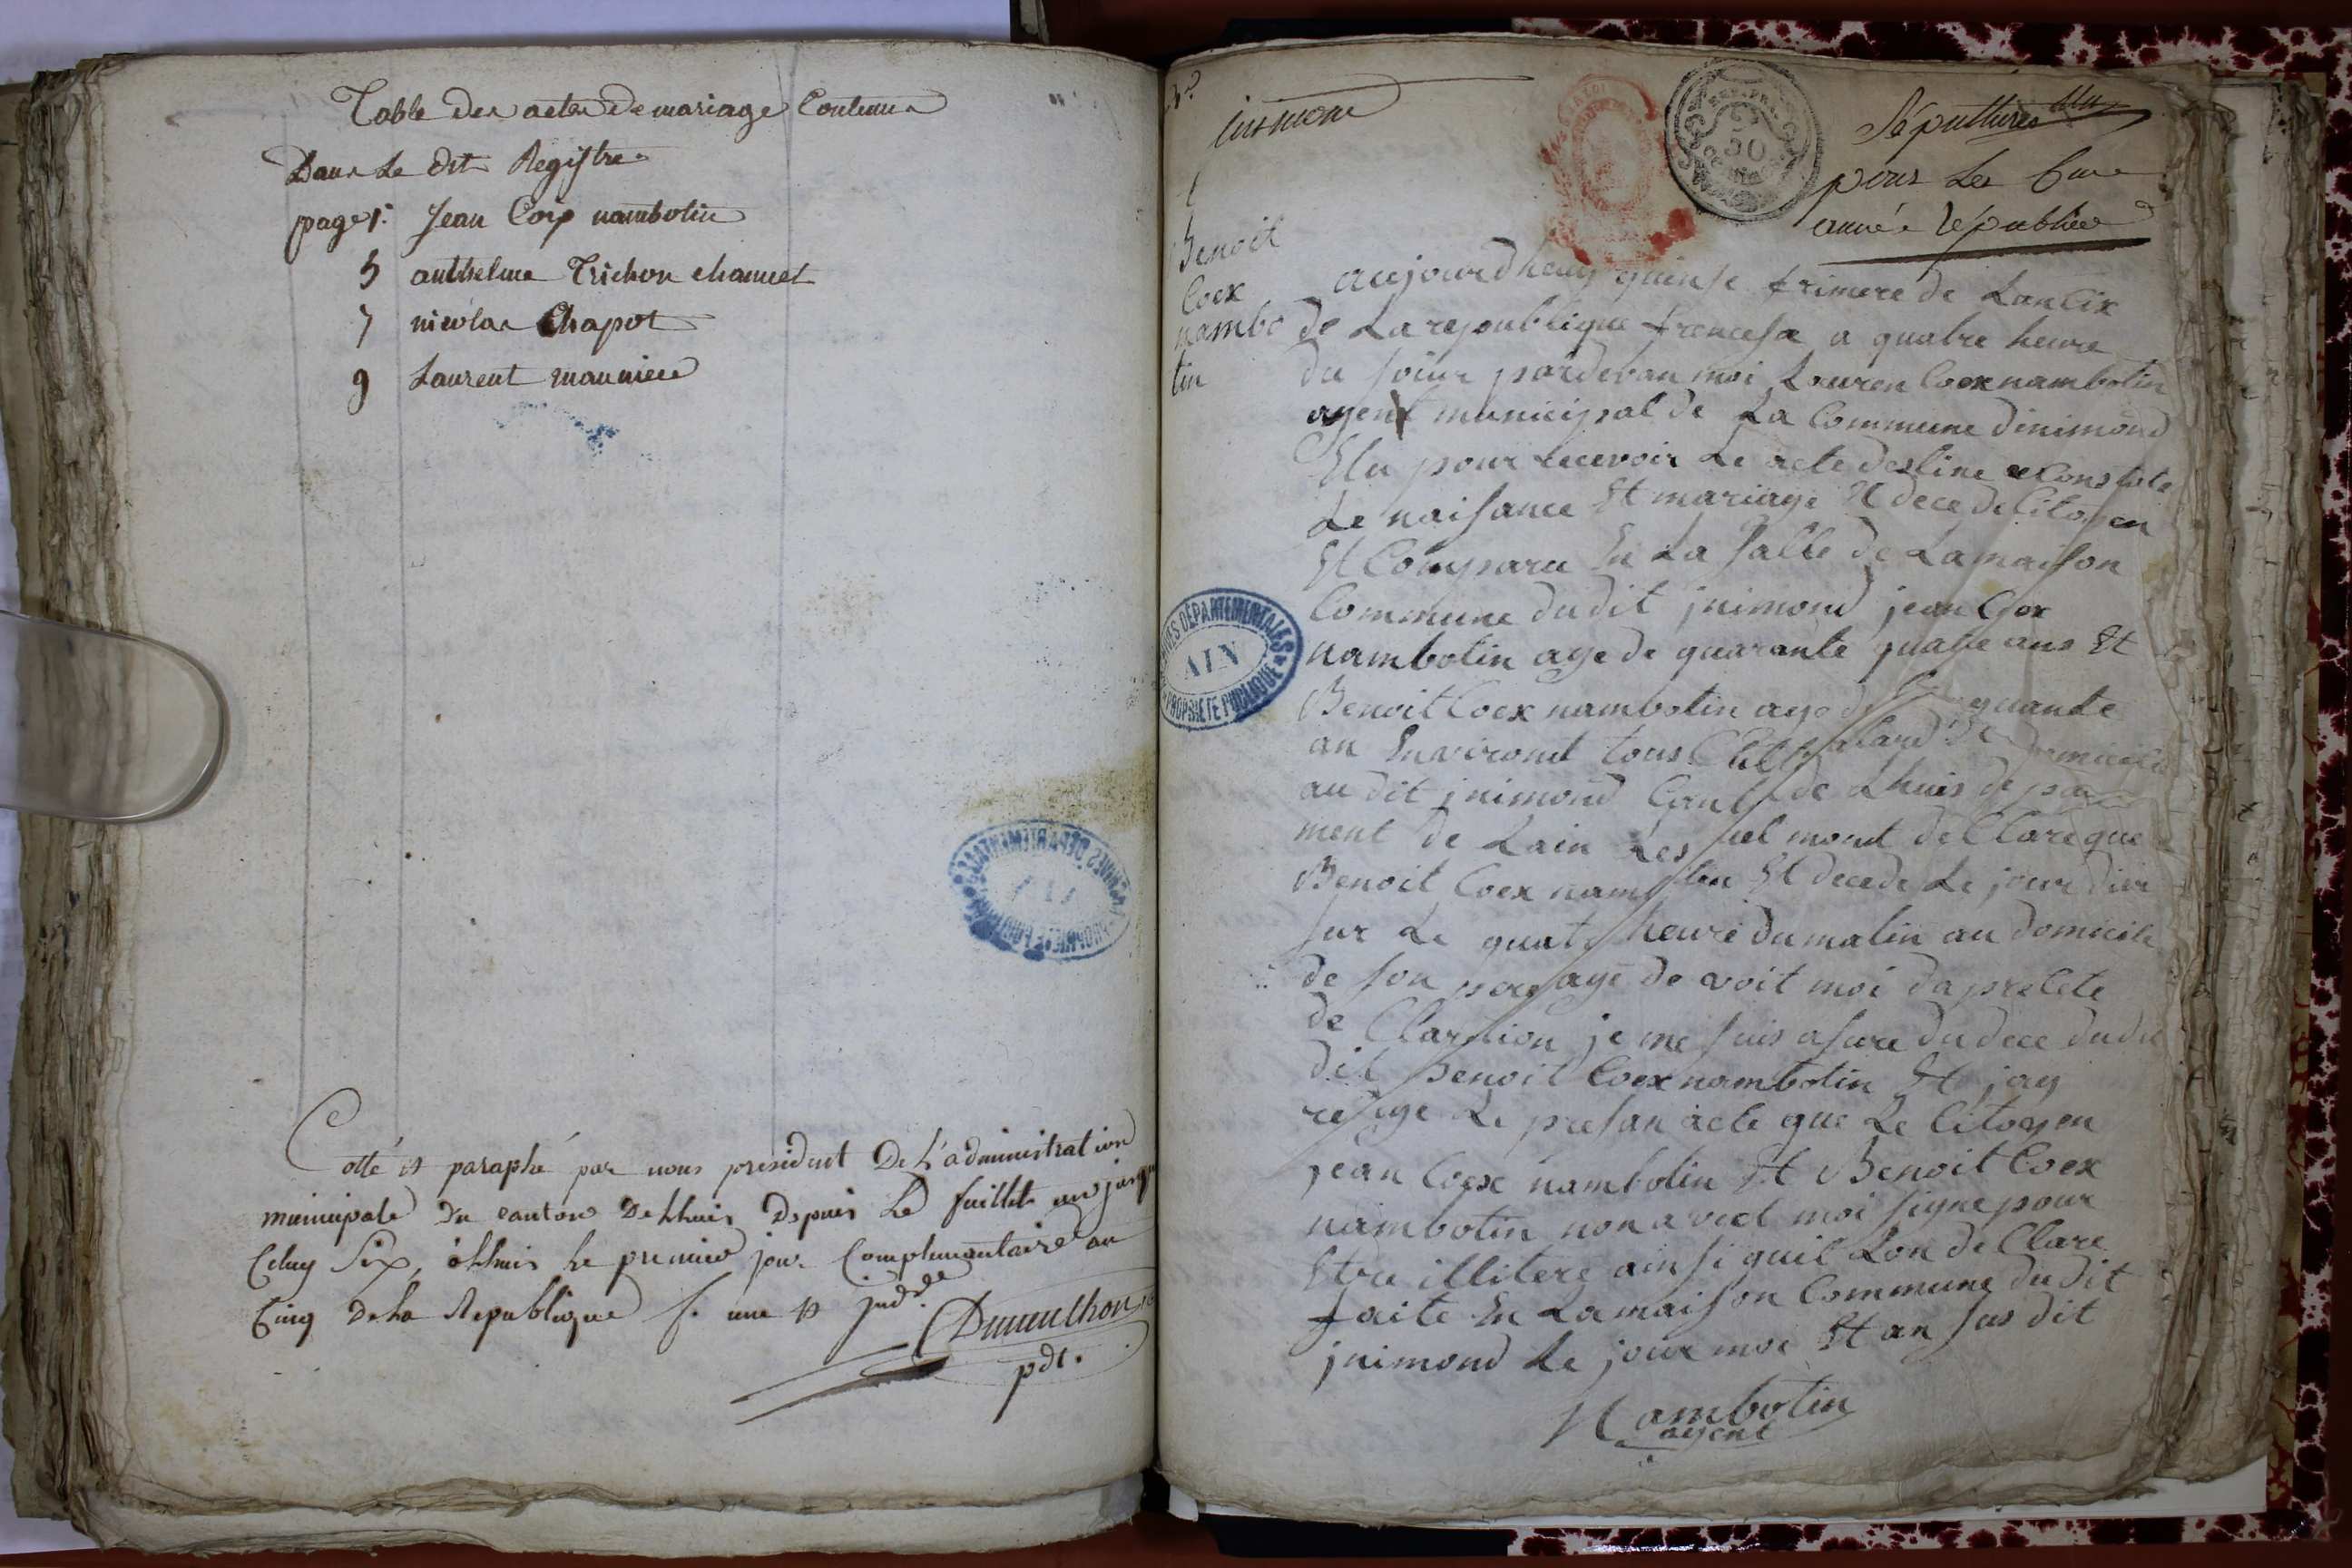 Table des actes de mariage Contenus
Dans Le dit Registre
page 1. Jean Coix nambotin
5 anthelme Trichon chaumet
7 nicolas Chapot
9 Laurent maunier
Cotté et paraphé par nous president De L'administration
municipale du canton Delhuis Depuis Le feuillet un jusqu
Celuy Six, à lhuis Le premier jour Complementaire an
Cinq De La Republique f. une et
Dumilhon
pdt.
inimond
Sépultures
pour Les
année republic
Benoit
Coex
nambo
tin
aujourdhuy quinse frimere de Lan Cix
de La republique francesa a quatre heure
du soiur pardevan moi Louren Coex nambotin
agent municipal de La Commune dinimond
Elu pour recevoir Le acte destine a Constate
Le naisance Et mariage Et dece de Citoyen
Et Comparu En La salle de Lamaison
Commune du dit jnimond jean Coex
nambotin age de quarante quatre ans Et
Benoit Coex nambotin age de quante
an Environd tous domicile
au dit jnimond Cant de Lhuis depa
ment de Lain Les quel mont de Clare que
Benoit Coex nambotin Et decede Le jour dier
sur Le quatre heure du matin au domicile
de son pere age de voit moi dapreste
de Claration je me suis asure du dece du du
dit Benoit Coex nambotin Et jay
redige Le presan acte que Le Citoyen
jean Coex nambotin Et Benoit Coex
nambotin non avect moi signe pour
Etre illitere ainsi quil Lon de Clare
faite En La maison Commune du dit
jnimond Le jour moi Et an sus dit
Nambotin
agent
ARCHIVES DÉPARTEMENTALES
AIN
PROPRIÉTÉ PUBLIQUE